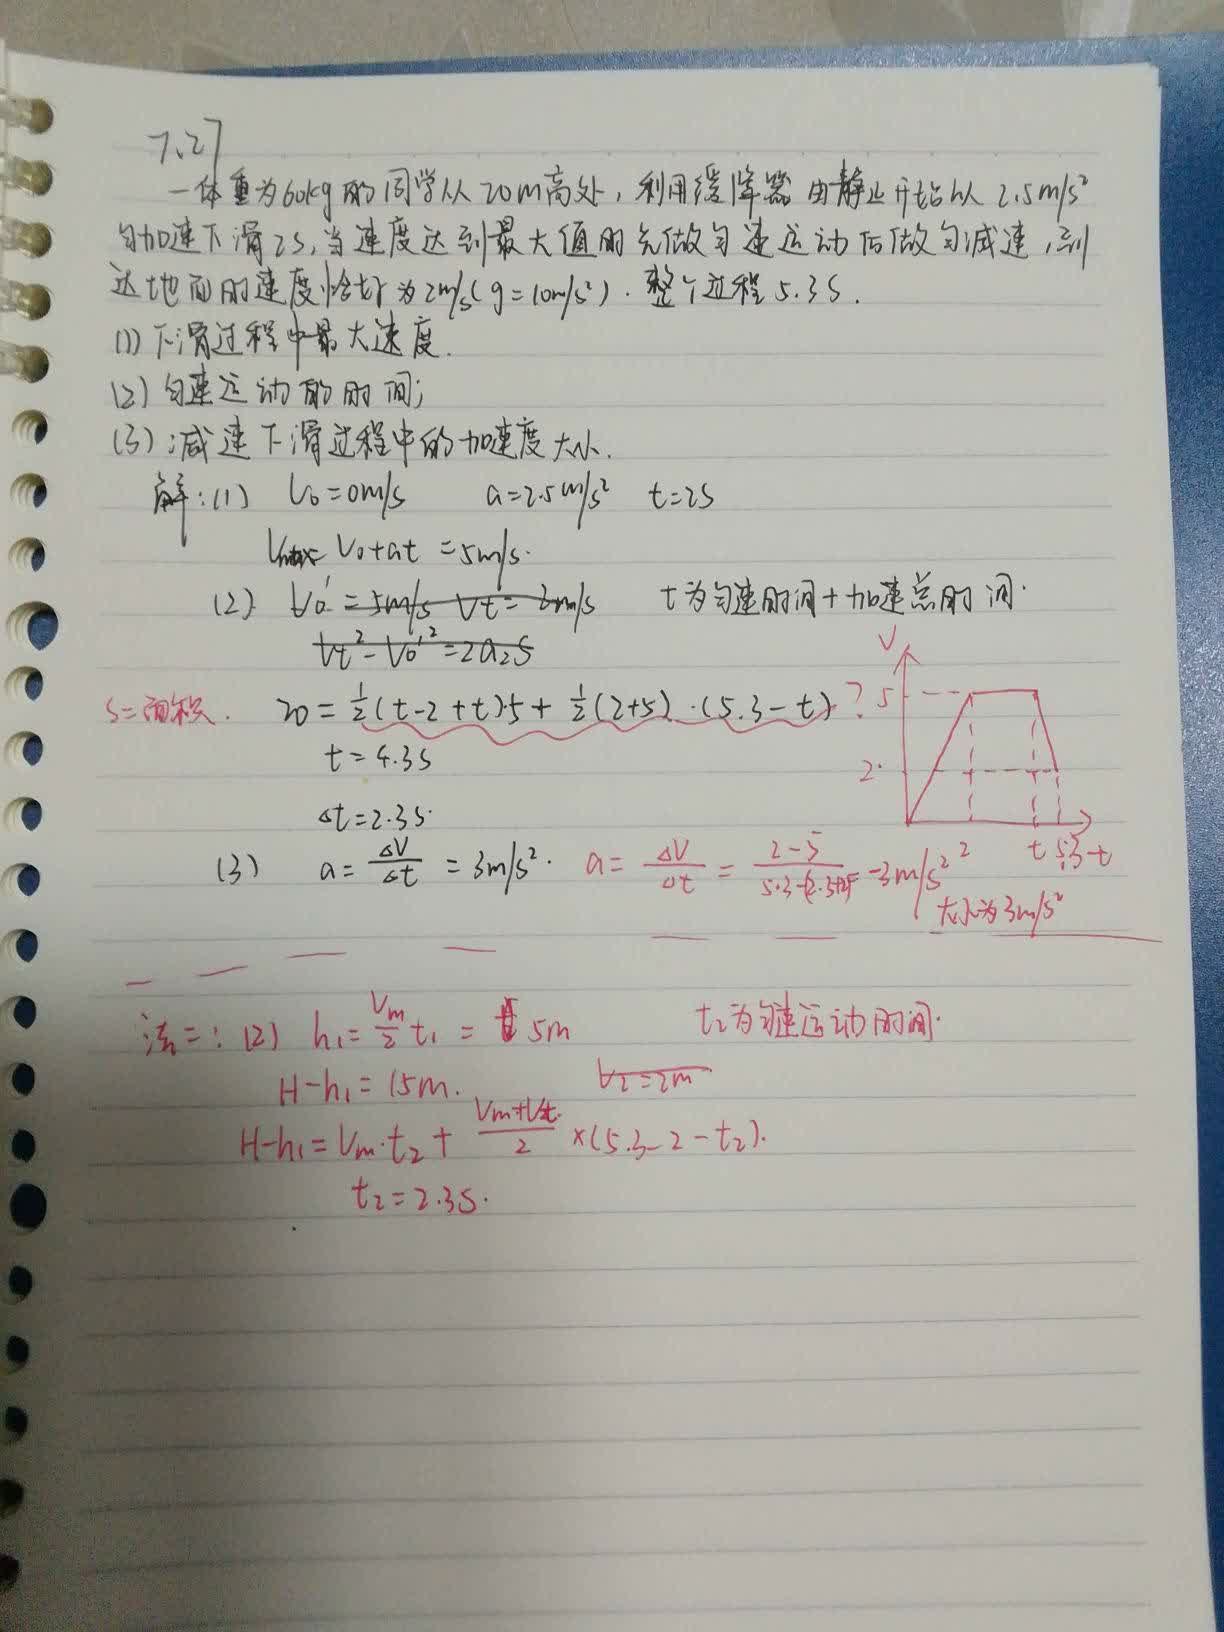 7.27
一体重为60kg的同学从20m高处,利用缓降器由静止开始以2.5m/s²
匀加速下滑2s,当速度达到最大值时先做匀速运动后做匀减速,到
达地面时速度恰好为2m/s(g=10m/s²).整个过程5.3s.
(1)下滑过程中最大速度.
(2)匀速运动的时间;
(3)减速下滑过程中的加速度大小.
解:(1) V₀=0m/s a=2.5m/s² t=2s
Vmax=V₀+at=5m/s.
(2) V₀'=5m/s Vt=2m/s t为匀速时间+加速总时间.
Vt²-V₀'²=2a₂S
S=面积. 20=½(t-2+t)·5+½(2+5)·(5.3-t)?
t=4.3s
Δt=2.3s.
V
5
2
t 5.3-t
(3) a=ΔV/Δt=3m/s². a=ΔV/Δt=(2-5)/
-3m/s²
大小为3m/s²
法二:(2) h₁=Vm/2 t₁= 5m t₂为匀速运动时间.
H-h₁=15m. V₂=2m
H-h₁=Vm·t₂+(Vm+Vt)/2×(5.3-2-t₂).
t₂=2.3s.